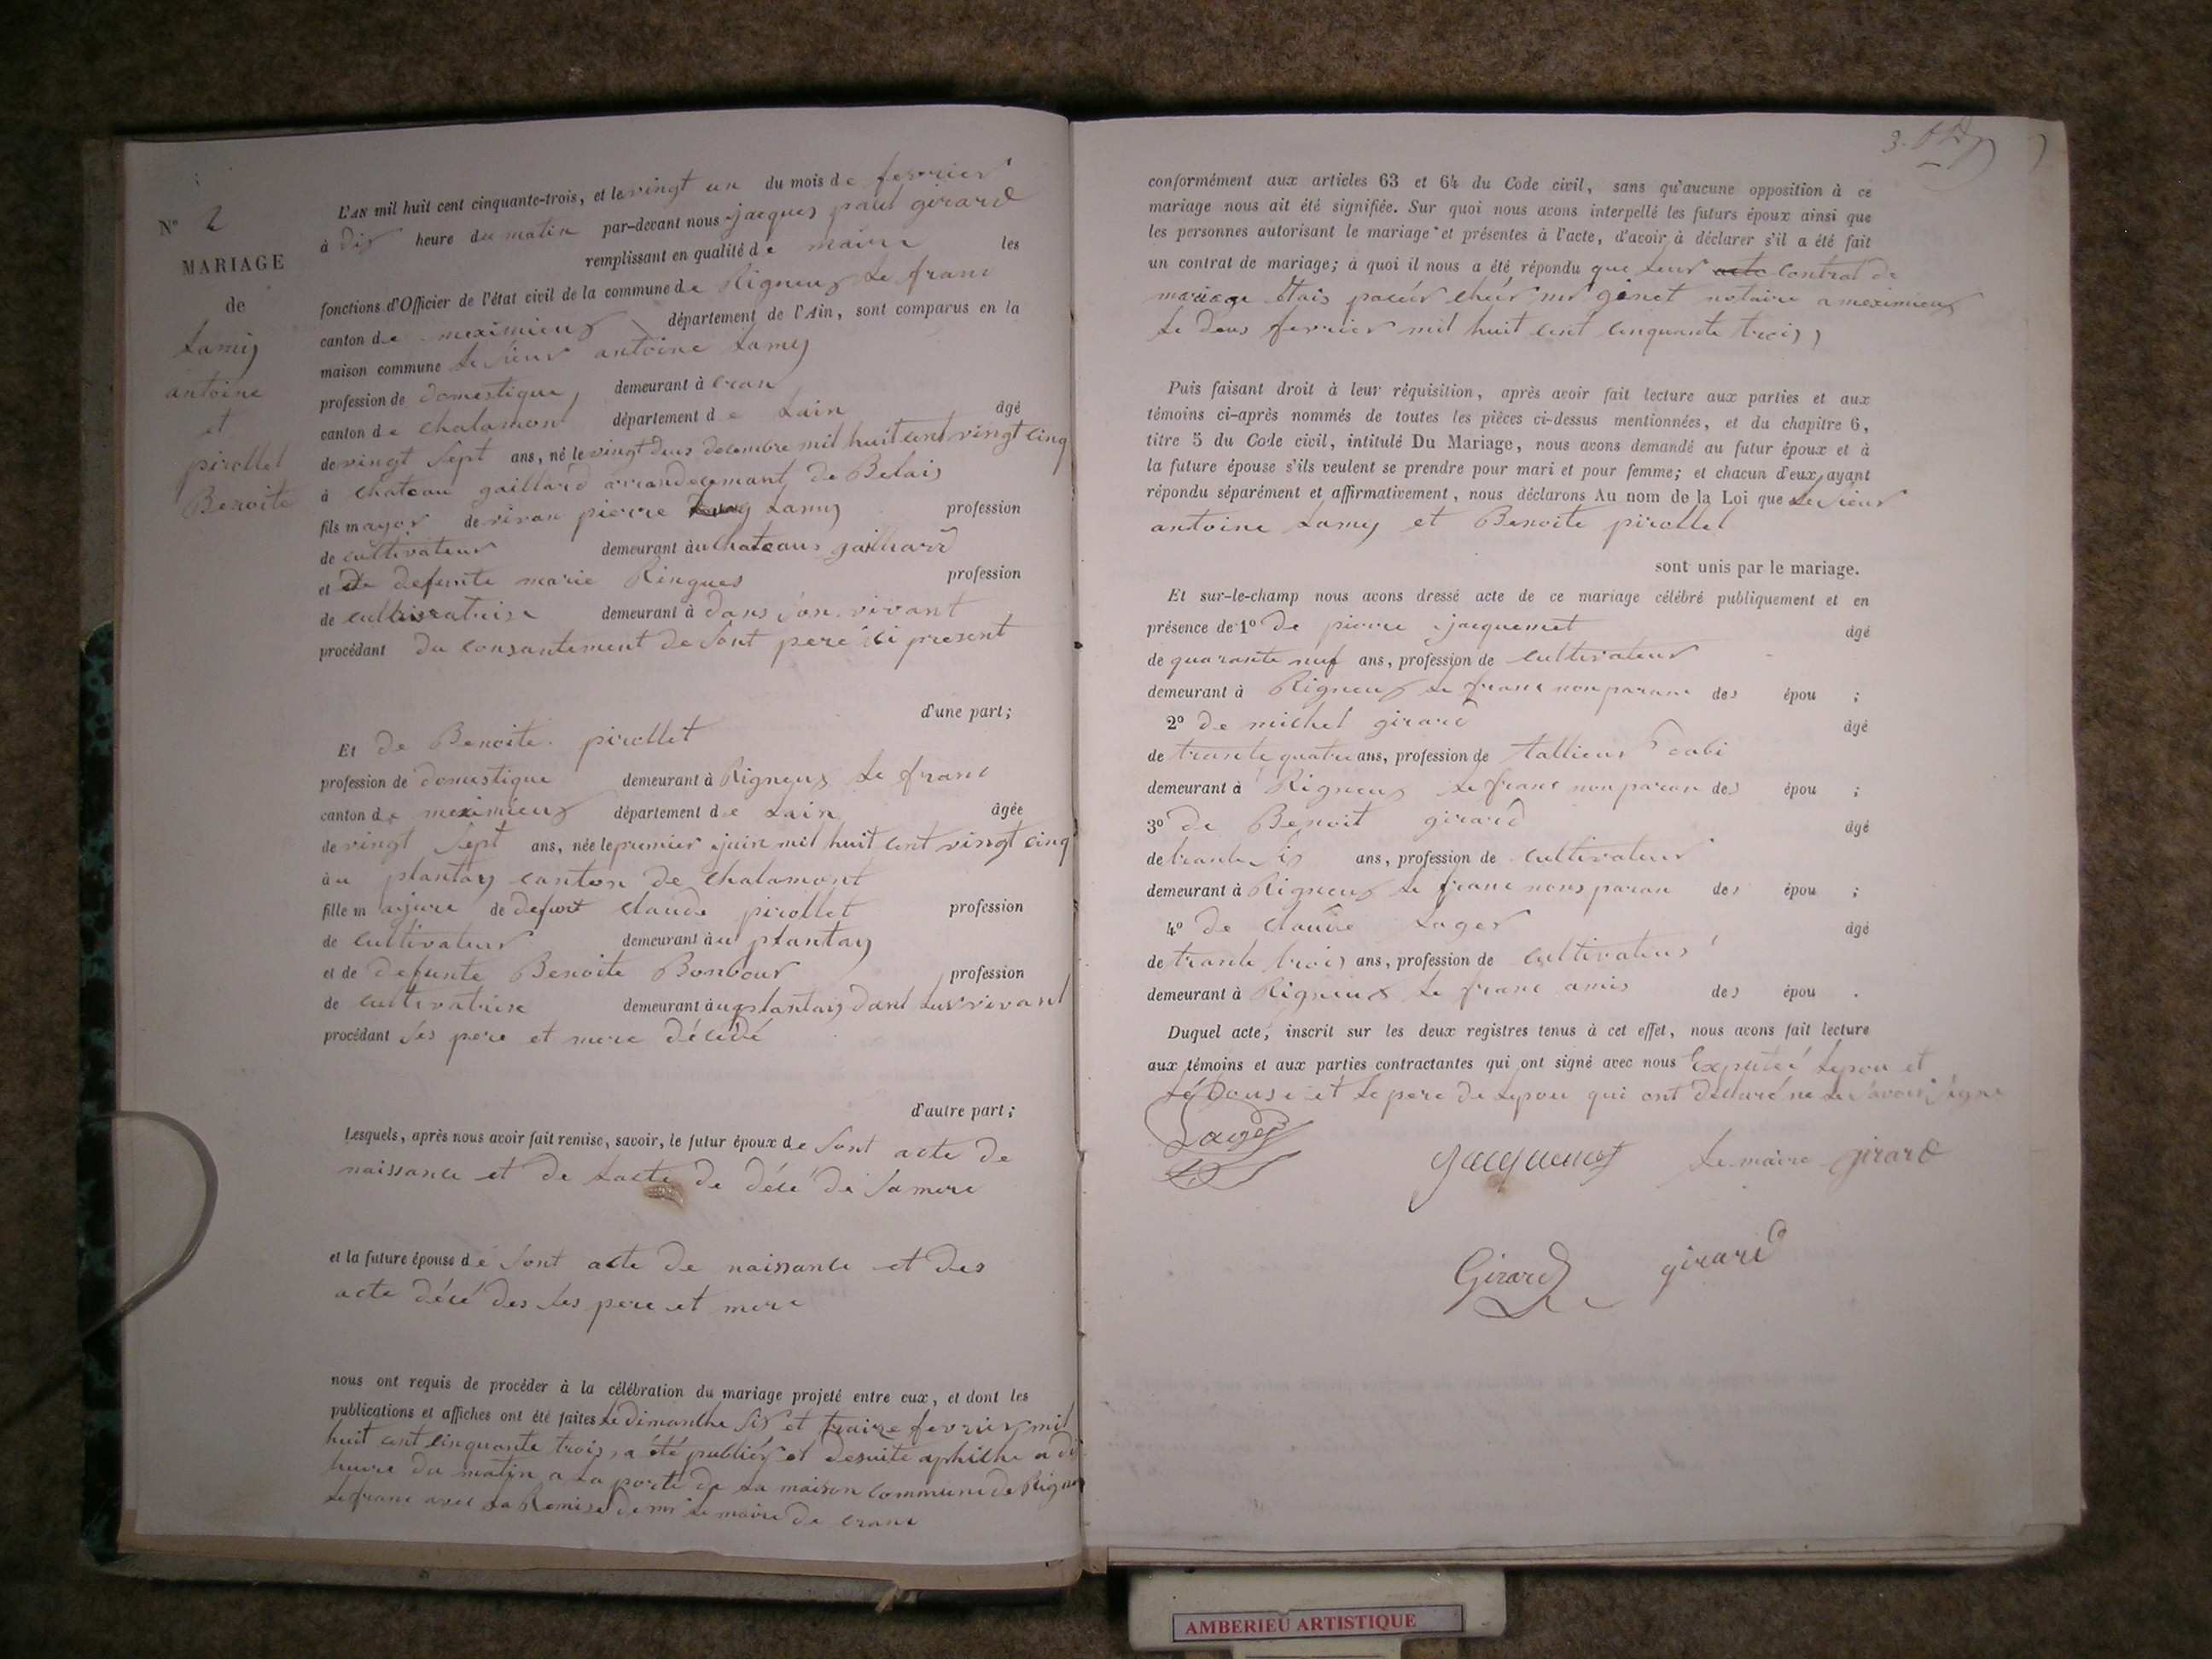 N° 2
MARIAGE
de
Lamy
antoine
et
pirollet
Benoite
L'AN mil huit cent cinquante-trois, et le vingt un du mois de fevrier
à dix heure du matin par-devant nous jacques paul girard
remplissant en qualité de maire les
fonctions d'Officier de l'état civil de la commune de Rigneux Le franc
canton de meximieux département de l'Ain, sont comparus en la
maison commune Le sieur antoine Lamy
profession de domestique, demeurant à cran
canton de chalamont département de Lain âgé
de vingt sept ans, né le vingt deus decembre mil huit cent vingt cinq
à chateau gaillard arrondecemant de Belais
fils mayor de vivan pierre Lamy profession
de cultivateur demeurant àu chateaux gaillard
et de defunte marie Ringues profession
de cultivatrise demeurant à dans son vivant
procédant du consantement de sont pere ici present
d'une part;
Et de Benoite pirollet
profession de domestique demeurant à Rigneux Le franc
canton de meximieux département de Lain âgée
de vingt sept ans, née le premier juin mil huit cent vingt cinq
àu plantay canton de chalamont
fille majure de defunt claude pirollet profession
de cultivateur demeurant àu plantay
et de defunte Benoite Bonbour profession
de cultivatrise demeurant àu plantay dant Leur vivant
procédant ses pere et mere décédé
d'autre part;
Lesquels, après nous avoir fait remise, savoir, le futur époux de sont acte de
naissance et de Lacte de décé de sa mere
et la future épouse de sont acte de naissance et des
acte décé des ses pere et mere
nous ont requis de procéder à la célébration du mariage projeté entre eux, et dont les
publications et affiches ont été faites Le dimanche six et traize fevrier mil
huit cent cinquante trois, a été publiér et desuite aphiche a dix
heure du matin a La porte de La maison commune de Rigneux
Le franc avec La Remise de mr Le maire de crane
3.
conformément aux articles 63 et 64 du Code civil, sans qu'aucune opposition à ce
mariage nous ait été signifiée. Sur quoi nous avons interpellé les futurs époux ainsi que
les personnes autorisant le mariage et présentes à l'acte, d'avoir à déclarer s'il a été fait
un contrat de mariage; à quoi il nous a été répondu que Leur acte contrat de
mariage Etais paceér cheér mr ginet notaire a meximieux
Le deus fevrier mil huit cent cinquante trois,
Puis faisant droit à leur réquisition, après avoir fait lecture aux parties et aux
témoins ci-après nommés de toutes les pièces ci-dessus mentionnées, et du chapitre 6,
titre 5 du Code civil, intitulé Du Mariage, nous avons demandé au futur époux et à
la future épouse s'ils veulent se prendre pour mari et pour femme; et chacun d'eux, ayant
répondu séparément et affirmativement, nous déclarons Au nom de la Loi que Le sieur
antoine Lamy et Benoite pirollet
sont unis par le mariage.
Et sur-le-champ nous avons dressé acte de ce mariage célébré publiquement et en
présence de 1° de pierre jacquemet âgé
de quarante neuf ans, profession de cultivateur
demeurant à Rigneux Le franc non parane des épou ;
2° de michel girard âgé
de trante quatre ans, profession de tallieur dabi
demeurant à Rigneux Le franc non paran des épou ;
3° de Benoit girard âgé
de trante six ans, profession de cultivateur
demeurant à Rigneux Le franc nons paran des épou ;
4° de claude Lager âgé
de trante trois ans, profession de cultivateur
demeurant à Rigneux Le franc amis des épou .
Duquel acte, inscrit sur les deux registres tenus à cet effet, nous avons fait lecture
aux témoins et aux parties contractantes qui ont signé avec nous Exceptéé Lepou et
Lépouse et Le pere de Lepou qui ont déclaré ne Le savoir signe
Lager
Jacquemet Le maire girard
Girard girard
AMBERIEU ARTISTIQUE